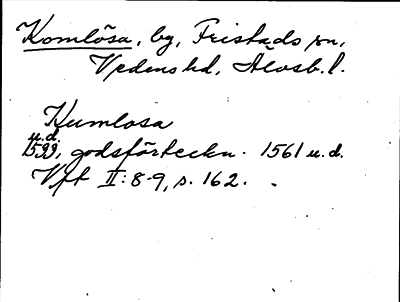 Komlösa, by, Fristads sn,
Vedens hd, Älvsb. l.
Kumlosa
u.d.
1599, godsförteckn. 1561 u.d.
Vft II:8-9, s. 162.